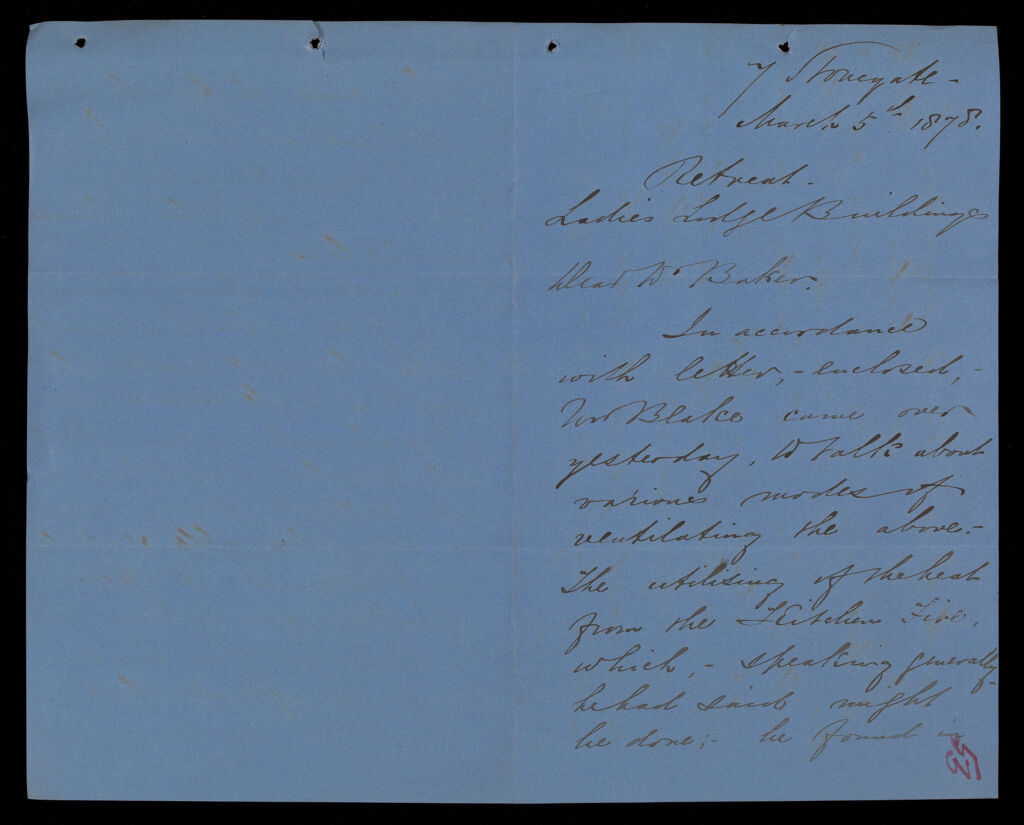 7 Stonegate -
March 5th 1878.
Retreat -
Ladies Lodge Buildings
Dear Dr Baker.
In accordance
with letter, - enclosed, -
Mr Blake came over
yesterday, to talk about
various modes of
ventilating the above. -
The utilising of the heat
from the Kitchen Fire,
which, - speaking generally
he had said might
be done; - he found in
53